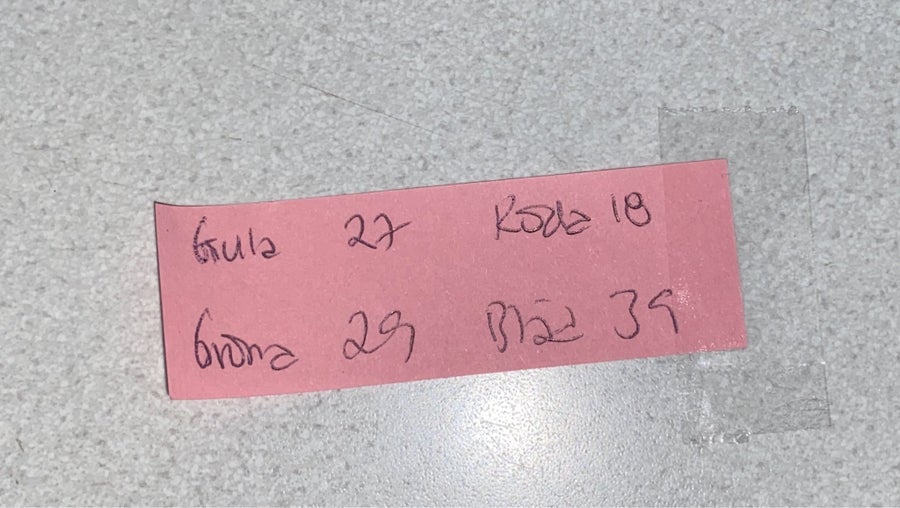 Gula 27 Röda 18
Gröna 29 Blåa 39